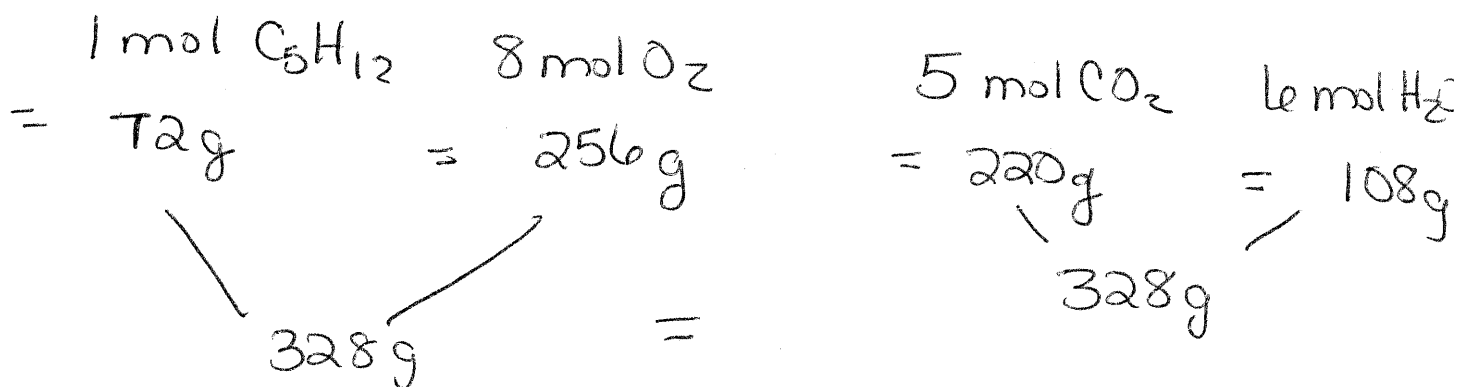 1 mol C₅H₁₂ 8 mol O₂ 5 mol CO₂ 6 mol H₂
= 72g = 256g = 220g = 108g
328g = 328g